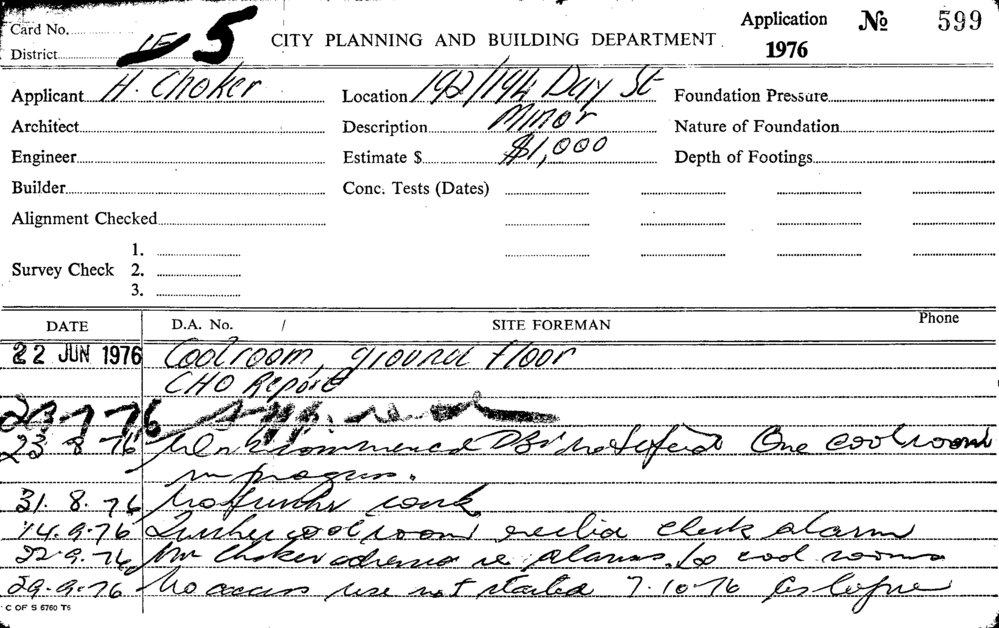 Card No.
District 15 5
CITY PLANNING AND BUILDING DEPARTMENT
Application No 599
1976
Applicant H. Choker
Location 192/194 Day St
Foundation Pressure
Architect
Description Minor
Nature of Foundation
Engineer
Estimate $ $1,000
Depth of Footings
Builder
Conc. Tests (Dates)
Alignment Checked
Survey Check
1.
2.
3.
DATE D.A. No. / SITE FOREMAN Phone
22 JUN 1976 Coolroom, ground floor
CHO Report
23-7-76
23 8 76 Work commenced DBS notified One coolroom
in progress.
31. 8. 76 No further work
14.9.76 Further coolroom erected check alarm
22.9.76 Mr Choker advised re alarms to cool rooms
29.9.76 No access use not started 7.10.76 As before
C OF S 6760 T6